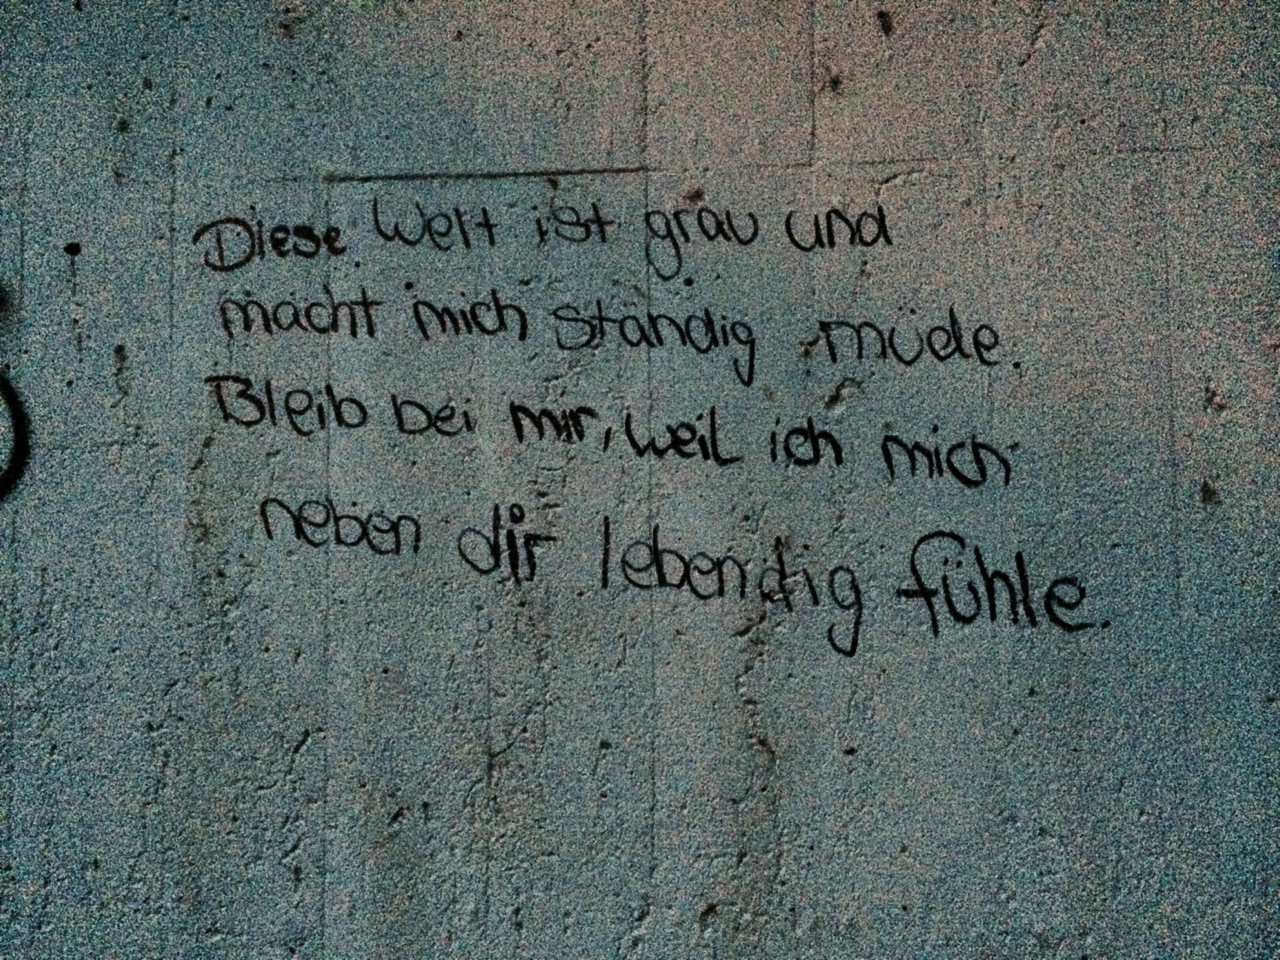 Diese Welt ist grau und
macht mich ständig müde.
Bleib bei mir, weil ich mich
neben dir lebendig fühle.